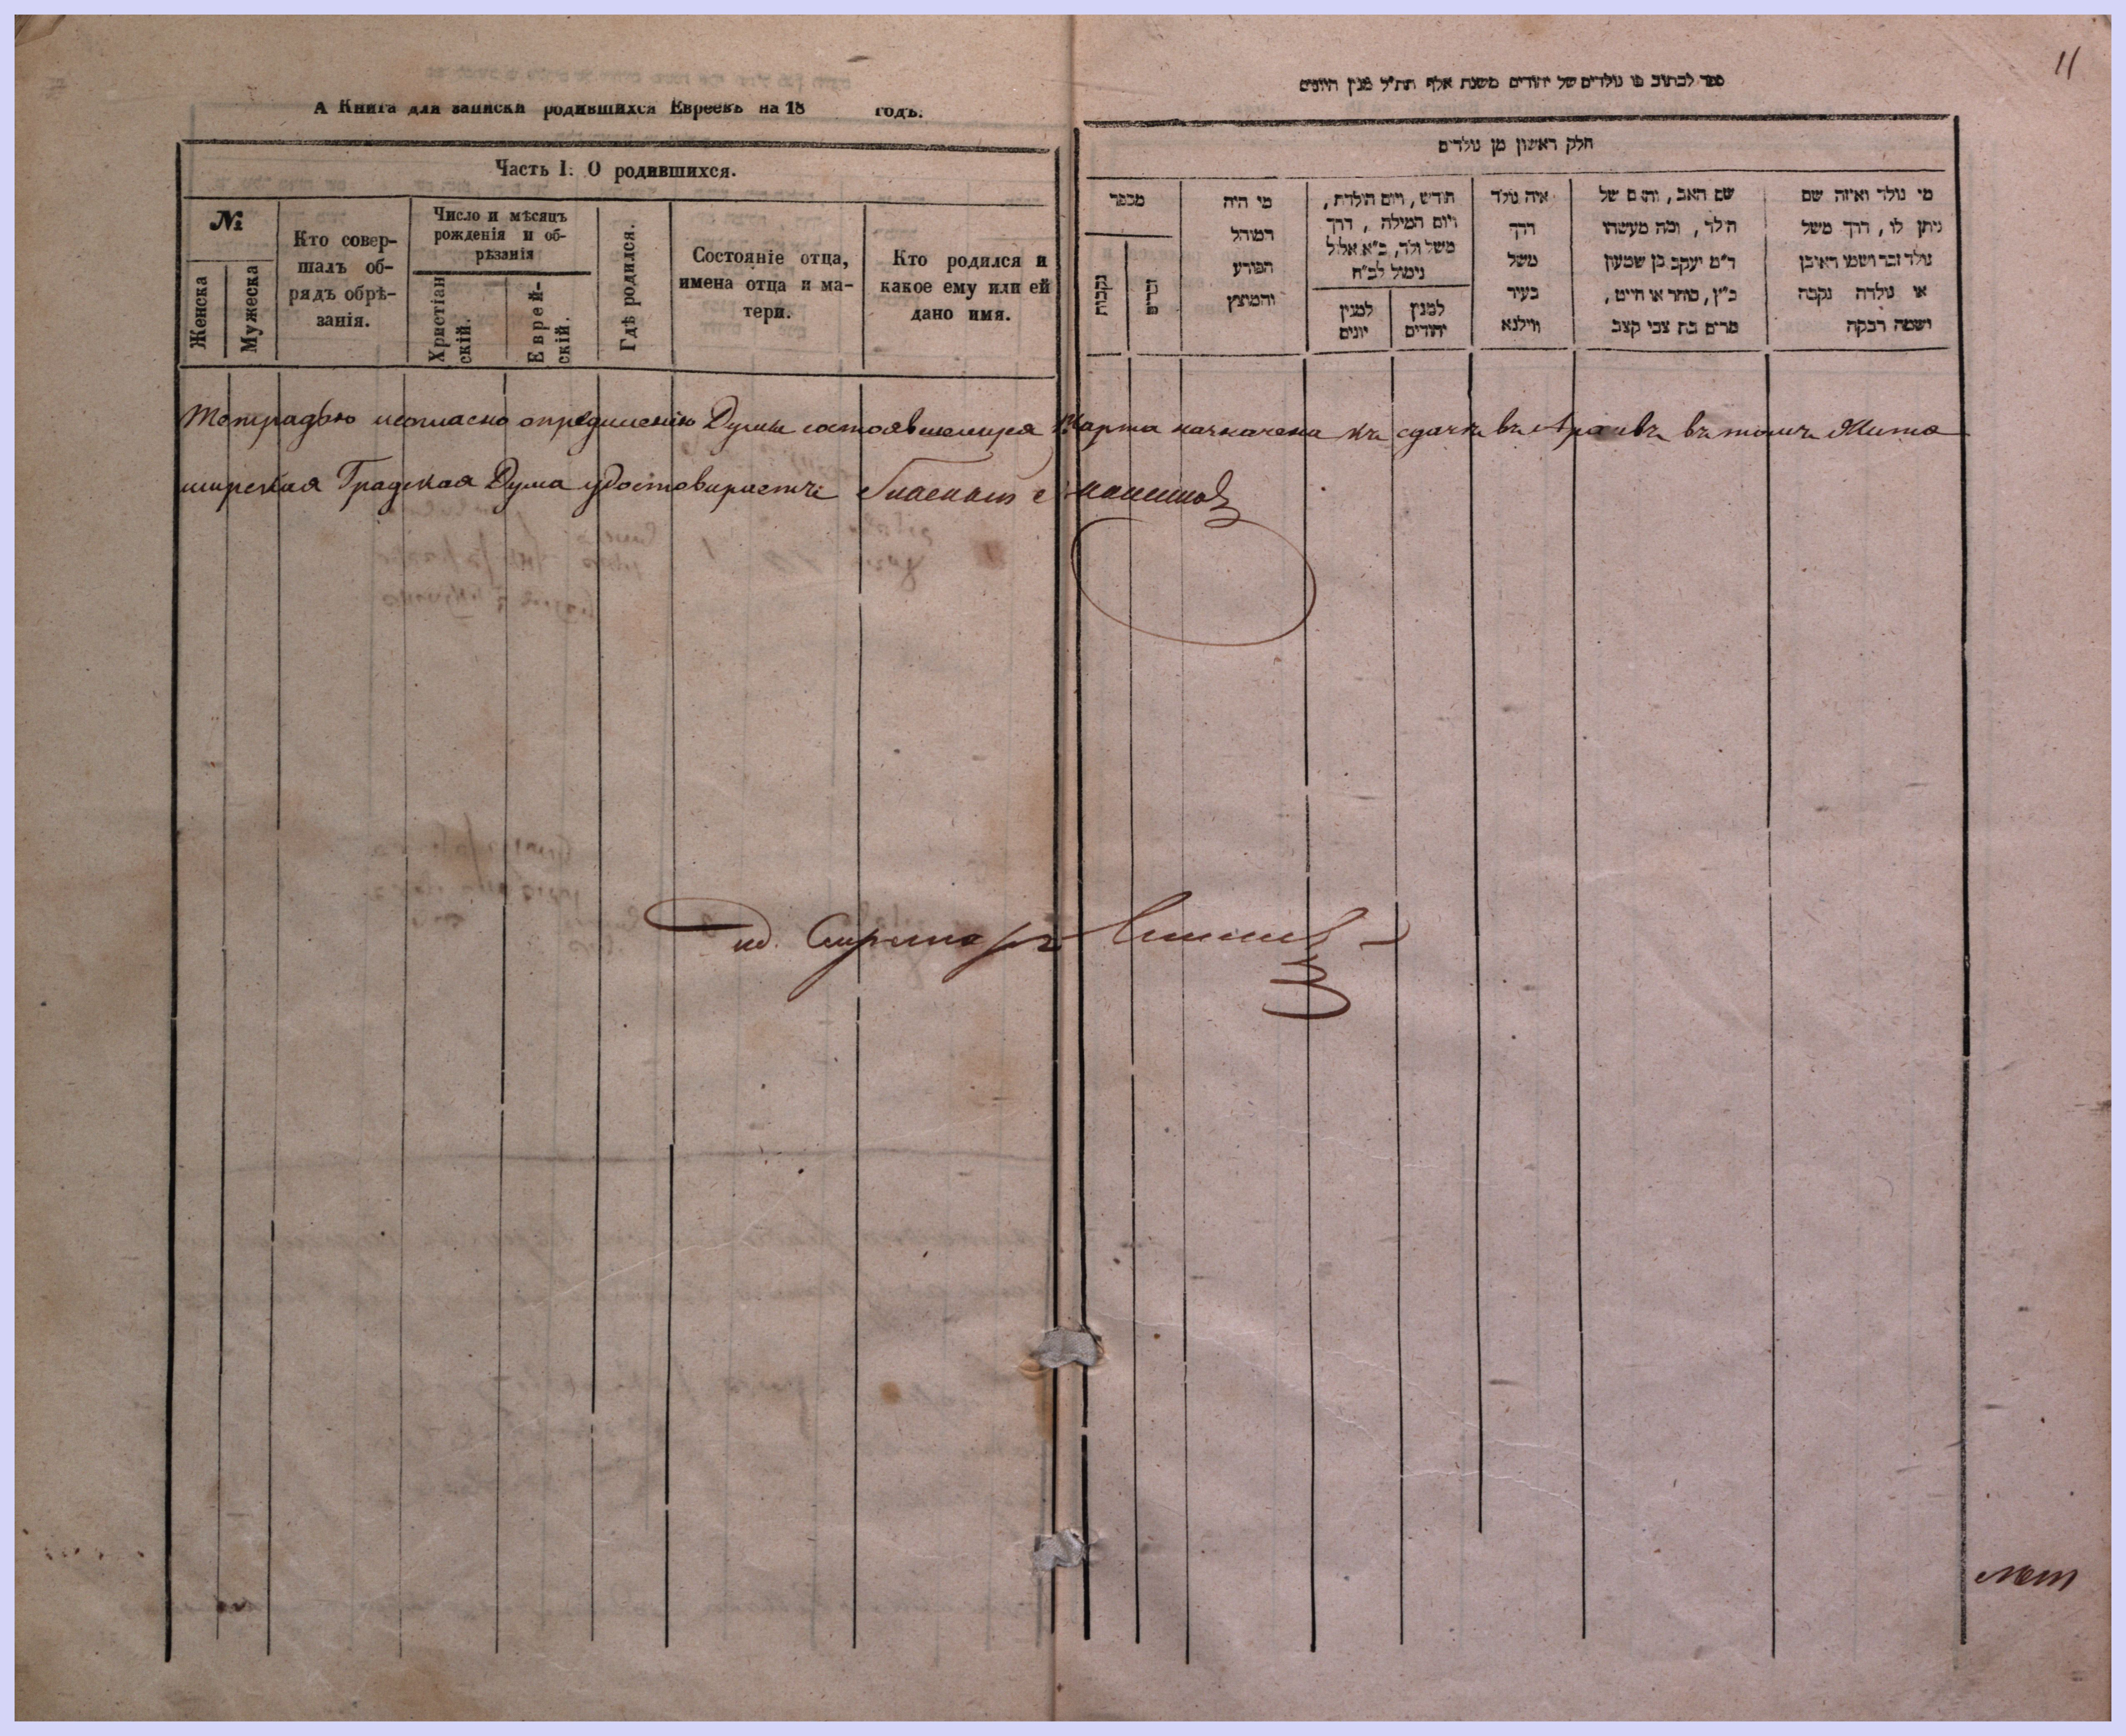 11
А Книга для записки родившихся Евреевъ на 18 годъ.
Часть I. О родившихся.
№
Женска
Мужеска
Кто совер-
шалъ об-
рядъ обрѣ-
занія.
Число и мѣсяцъ
рожденія и об-
рѣзанія
Христіан
скій.
Еврей-
скій.
Гдѣ родился.
Состояніе отца,
имена отца и ма-
тери.
Кто родился и
какое ему или ей
дано имя.
ספר לכתוב בו נולדים של יהודים משנת אלף תת״ל מנין היונים
חלק ראשון מן נולדים
מי נולד ואיזה שם
ניתן לו, דרך משל
נולד זכר ושמו ראובן
או נולדה נקבה
ושמה רבקה
שם האב, והאם של
הילד, ומה מעשהו
ר״מ יעקב בן שמעון
כ״ץ, סוחר או חייט,
מרים בת צבי קצב
איה נולד
דרך
משל
בעיר
ווילנא
חודש, ויום הולדת,
ויום המילה, דרך
משל ולד, כ״א אלול
נימול לכ״ח
למנין
יהודים
למנין
יונים
מי היה
המוהל
הפורע
והמוצץ
מספר
זכרים
נקבות
Тетрадью и согласно опредѣленію Думы состоявшемуся Марта назначена къ сдачѣ въ Архивъ въ томъ Жито
мирская Градская Дума удостовѣряетъ Гласный
ид. Секретарь
лет